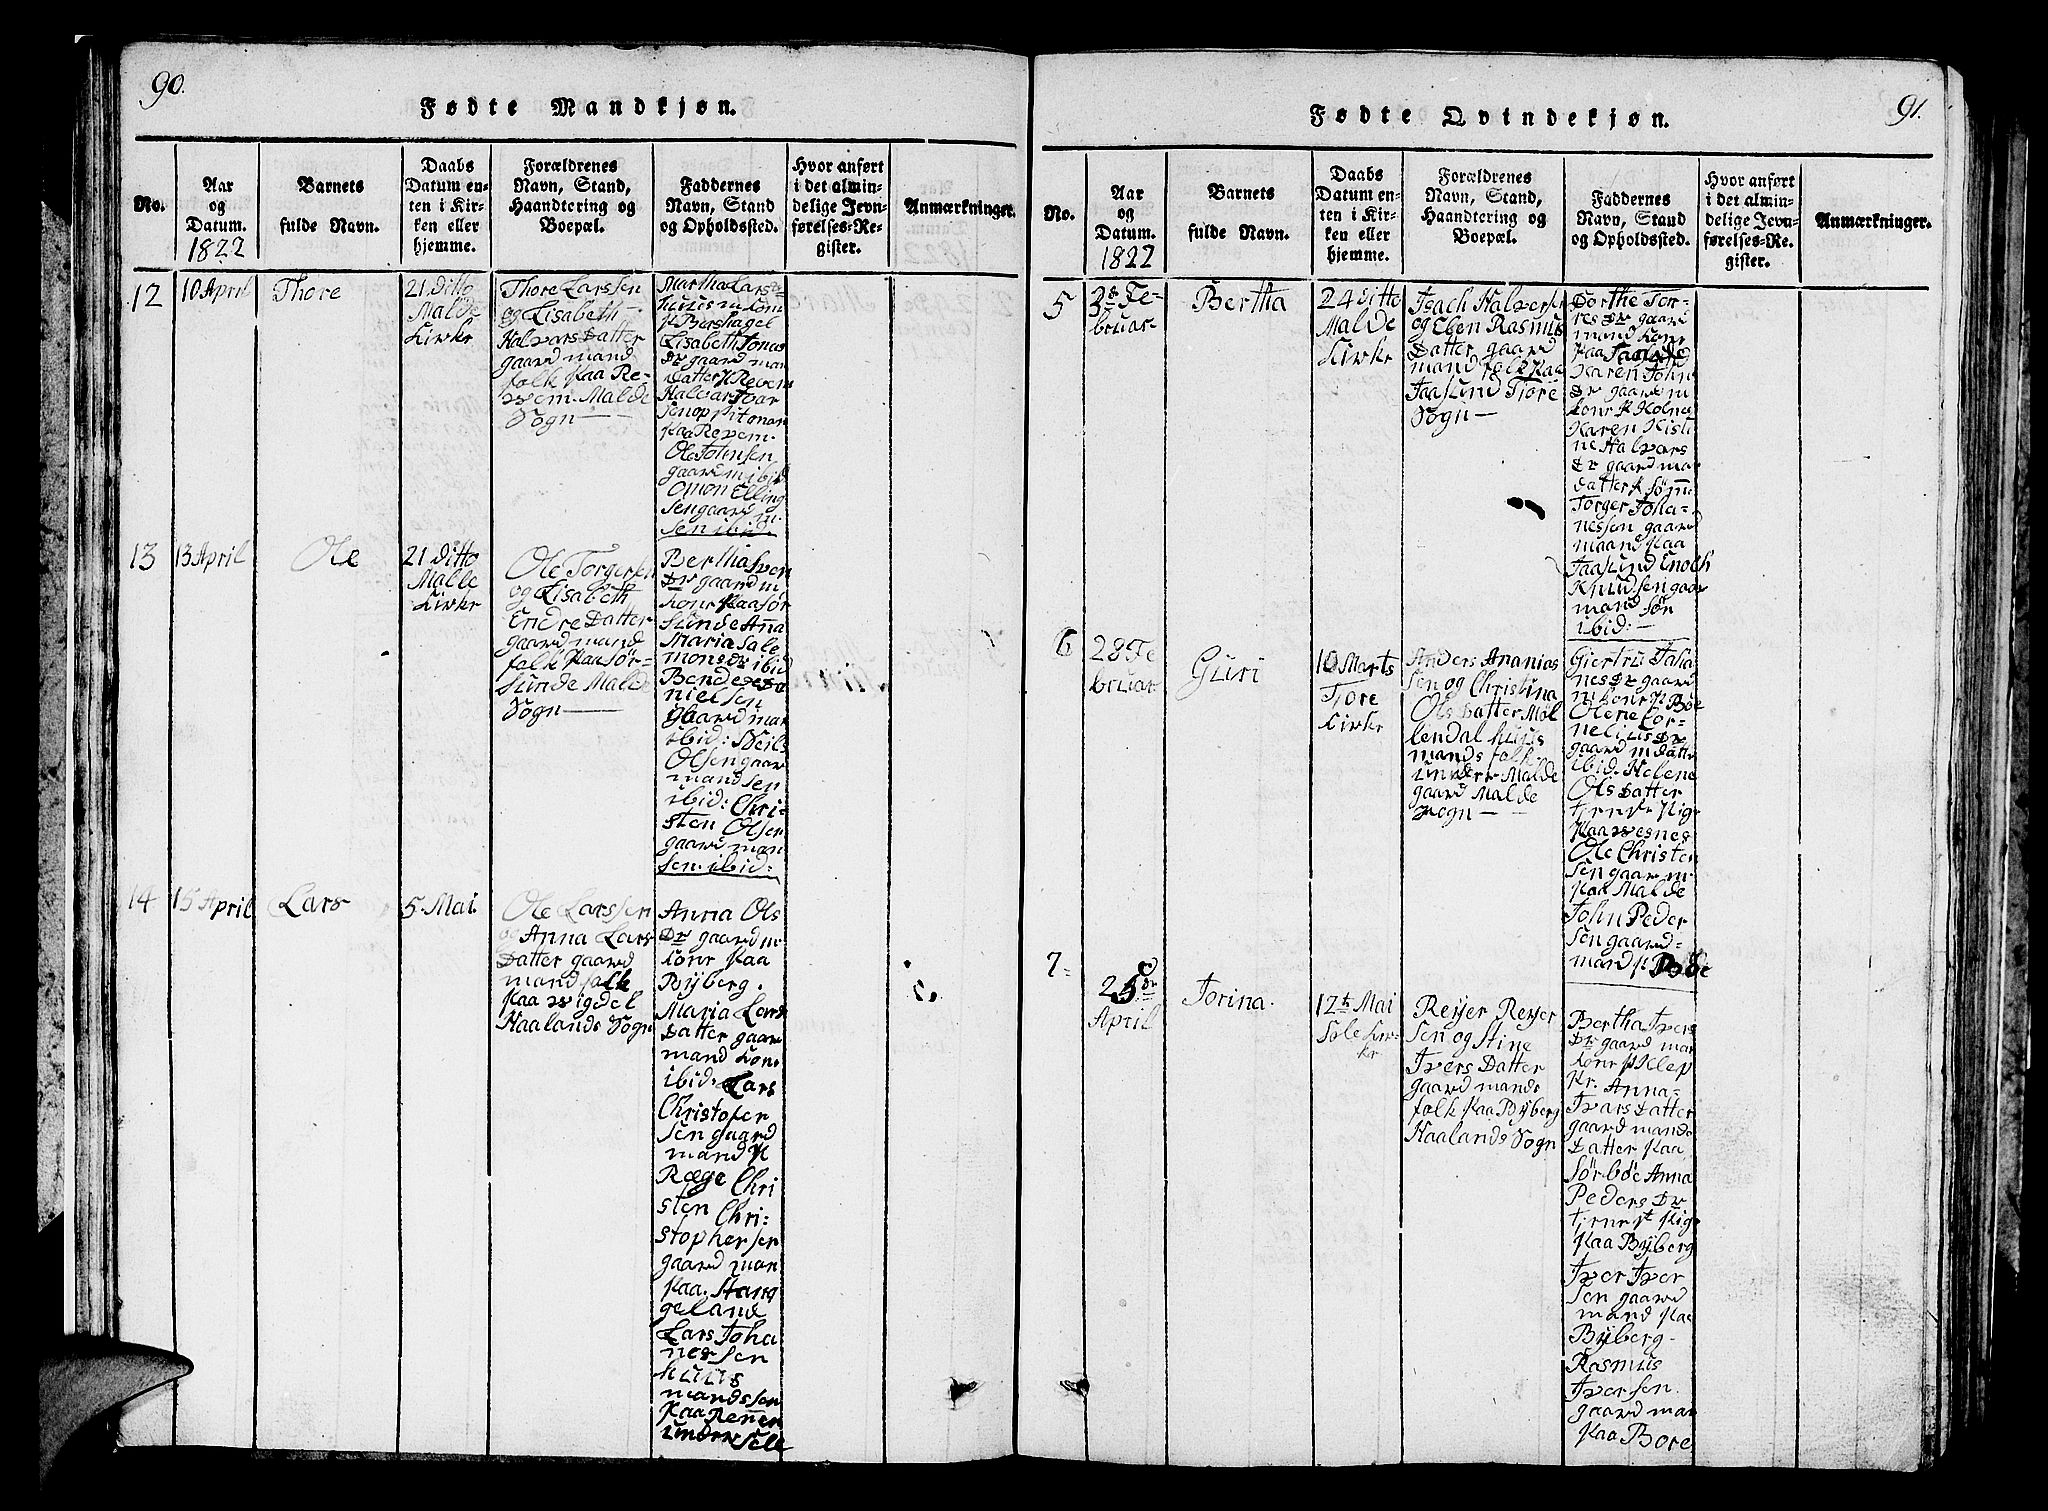 90.
Fødte Mandkjøn.
No.
Aar
og
Datum.
1822
Barnets
fulde Navn.
Daabs
Datum en-
ten i Kir-
ken eller
hjemme.
Forældrenes
Navn, Stand,
Haandtering og
Boepæl.
Faddernes
Navn, Stand
og Opholdssted.
Hvor anført
i det almin-
delige Jevn-
førelses-Re-
gister.
Anmærkninger.
12
10 April
Thore
21 Ditto
Malde
Kirke
Thore Larssen
og Lisabeth
Halvars Datter
gaard mand
folk Paa Re-
vem. Malde
Sogn
Martha Lars
huus m kone
P Berhagel
Elisabeth Jonas
Dr gaard man
Datter P Revem
Halvar Ivar
Sen opsitonar
Paa Revem.
Ole Johnsen
gaard m ibid
Omon Elling
Sen gaard m.
Sen ibid.
13
13 April
Ole
21 Ditto
Malle
Kirke
Ole Torgersen
og Lisabeth
Endre Datter
gaard mand
folk Paa Sør-
Sunde Malde
Sogn
Bertha Sven
Dr gaard m
kone Paa Sør
Sunde Anna
Maria Sale
mons Dr ibid
Bende Da
nielsen
gaard man
ibid: Neils
Olsen gaar
mand Sen
ibid: Chri-
sten Olsen
gaard man
Sen. ibid:
14
15 April
Lars
5 Mai.
Ole Larssen
og Anna Lars
Datter gaard
mand folk
Paa Vigdel
Haalands Sogn
Anna Ols
Dr gaard m
kone Paa
Byberg.
Maria Lars
Datter gaar
mand kon.
ibid: Lars
Christofer
Sen gaard
mand P
Ræge Chri
sten Chri-
stophersen
gaard man
Paa. Hang
geland
Lars Joha
nessen
huus
mands sen
Paa Renner
under Sele
91.
Fødte Qvindekjøn.
No.
Aar
og
Datum.
1822
Barnets
fulde Navn.
Daabs
Datum en-
ten i Kir-
ken eller
hjemme.
Forældrenes
Navn, Stand,
Haandtering og
Boepæl.
Faddernes
Navn, Stand
og Opholdsted.
Hvor anført
i det almin-
delige Jevn-
førelses-Re-
gister.
Anmærkninger.
5
Fe-
bruar
Bertha
24 ditto
Malde
Kirke
Isach Halvers
og Eben Rasmus
Datter gaard
mand folk Paa
Jaasund Tjore
Sogn
Dorthe Tor-
res Dr gaard
mand kone
Paa
Karen John
Dr gaard m
kone P Holne
Karen Kisti
ne Halvors
Dr gaard man
Datter P Sømme
Torger Joha-
nessen gaard
maand Paa
Jaasund Enoch
Knudsen gaar
mand Søn
ibid:
6
28 Fe
bruar
Guri
10 Marts
Tjore
Kirke
Anders Ananias
Sen og Christina
Ols Datter Møl
lendal huus
mands folk
under Malde
gaard Malde
Sogn
Giertru Joha
nes Dr gaard
m kone P Bøe
Olene Cor-
nelius Dr
gaard m Datte
ibid. Helene
Ols Datter
tjenst Pige
Paa Vesnes
Ole Christen
Sen gaard m
Paa Malde
John Peder
Sen gaard-
mand P Bøe
7
25de
April
Jorina.
12te Mai
Sole Kir-
ke
Reyer Reyer
Sen og Stine
Ivers Datter
gaard mands
folk Paa Byberg
Haalands Sogn
Bertha Ivers
Dr gaard man
kone P Klep
Kr. Anna-
Ivars Datter
gaard mands
Datter Paa
Sørbøe Anna
Peders Dr
tjenest Pige
Paa Byberg
Iver Iver
Sen gaard
mand Paa
Byberg-
Rasmus
Iversen.
gaard man
Paa Bore